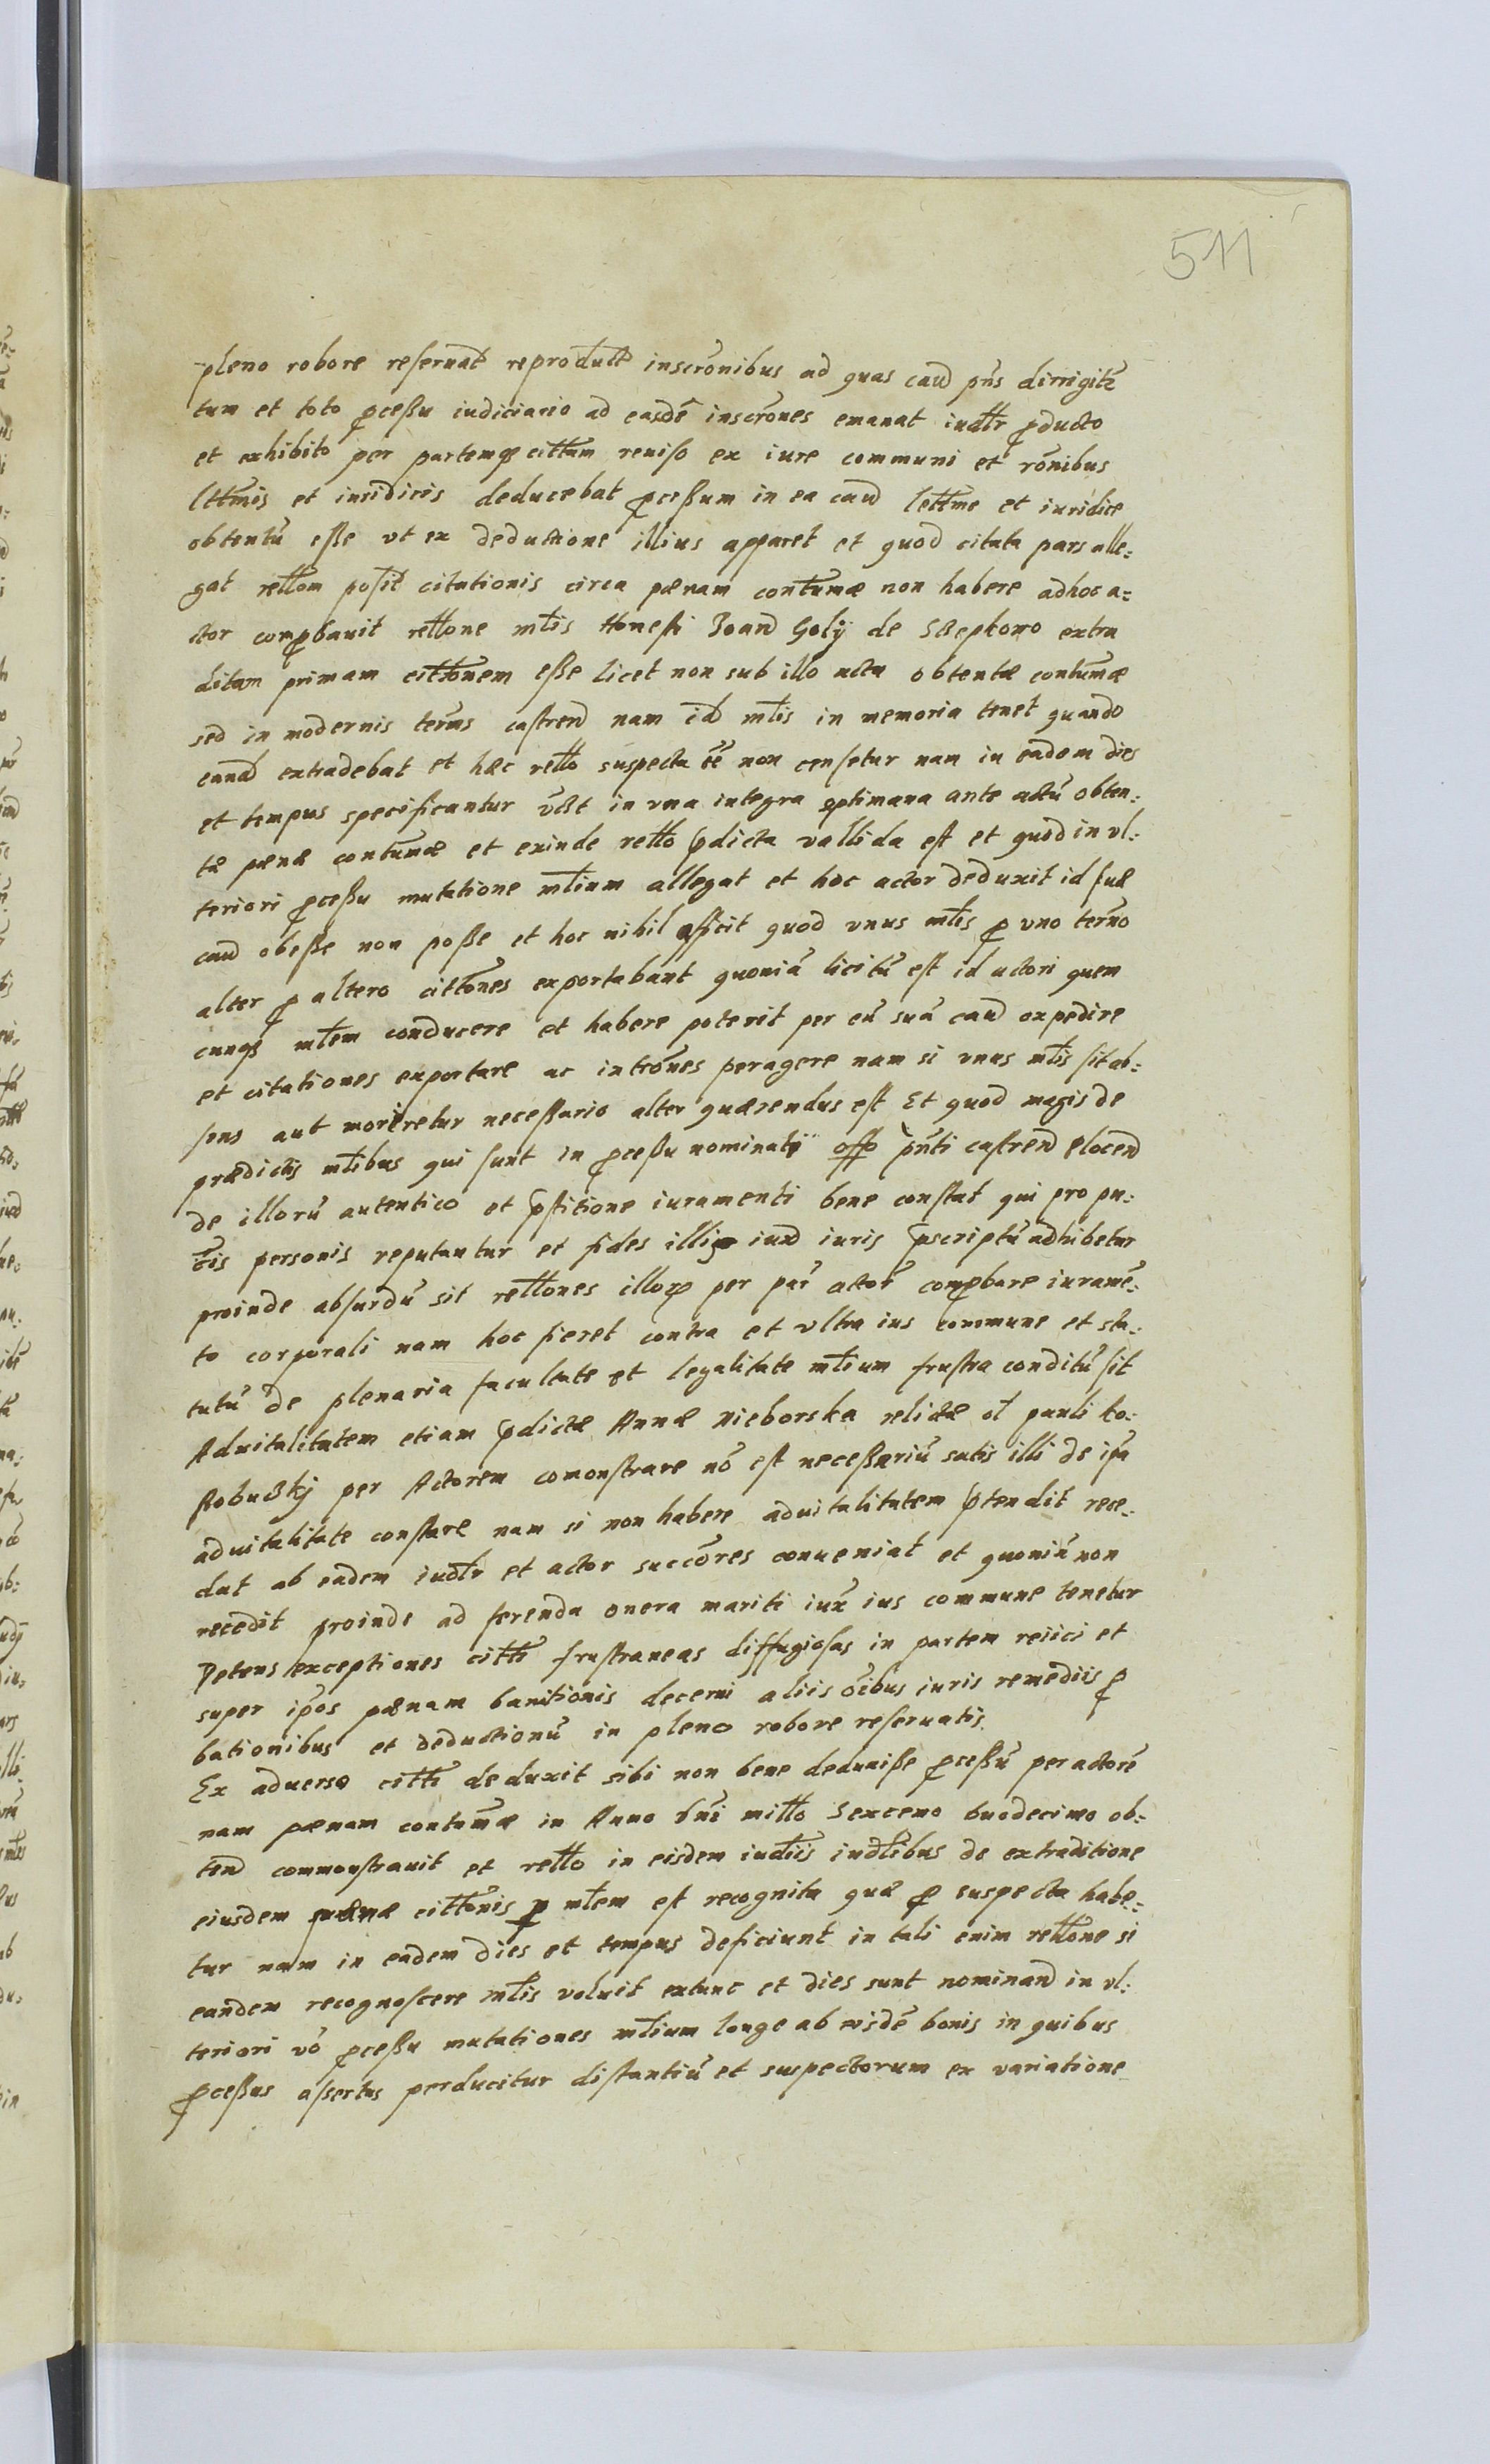 511
pleno robore reseruat reproductis inscrōnibus ad quas caus pn̄s dirrigitr
tum et toto pcessu iudiciario ad easdē inscrōnes emanat iudtr pducto
et exhibito per partemq citt̄am reuiso ex iure communi et rōnibus
ltt̄mis et iuridicis deducebat pcessum in ea caus lett̄me et iuridice
obtentū esse vt ex deductione illius apparet et quod citata pars alle:
gat rettōem posit citationis circa pænam contumæ non habere ad hoc a:
ctor compbauit rettone mtis Honesti Joan Goły de Stepkowo extra
ditam primam cittōnem esse licet non sub illo actu obtentæ contumæ
sed in modernis terms castren nam id mtis in memoria tenet quando
eand extradebat et hæc retto suspecta ēe non censetur nam in eadem dies
et tempus specificantur vdet in vna integra septimana ante actū obten:
tæ pænæ contumæ et exinde retto pdicta vallida est et quod in vl:
teriori pcessu mutatione mtium allegat et hoc actor deduxit id suæ
caus obesse non posse et hoc nihil officit quod vnus mtis p vno termo
alter p altero cittōnes exportabant quoniā licitū est id actori quem
cunqz mtem conducere et habere poterit per eū suā caus expedire
et citationes exportare ac intrōnes peragere nam si vnus mtis sit ab:
sens aut moriretur necessario alter quærendus est Et quod magis de
prædictis mtibus qui sunt in pcessu nominati offo pn̄ti castren plocen
de illorū autentico et pstitione iuramenti bene constat qui pro pu:
cis personis reputantur et fides illis iux iuris pscriptū adhibetur
proinde absurdū sit rettones illorz per par actor compbare iuramē:
to corporali nam hoc fieret contra et vltra ius commune et sta:
tutū de plenaria facultate et legalitate mtium frustra conditū sit
Aduitalitatem etiam pdictæ Annæ Nieborska relictæ ol pauli ko:
stobudzkj per Actorem comonstrare nō est necessariū satis illi de ipā
aduitalitate constare nam si non habere aduitalitatem ptendit rece:
dat ab eadem iudtr et actor succōres conueniat et quoniā non
recedit proinde ad ferenda onera mariti iux ius commune tenetur
Petens exceptiones citti frustraneas diffugiosas in partem reiici et
super ipos pænam banitionis decerni aliis ōibus iuris remediis p
bationibus et deductionū in pleno robore reseruatis.
Ex aduerso citti deduxit sibi non bene deduxisse pcessū per actorē
nam pænam contumæ in Anno dni mitto Sexceno duodecimo ob:
ten commonstrauit et retto in eisdem iudtiis iudtibus de extraditione
eiusdem cittōnis p mtem est recognita quæ p suspecta habe:
tur nam in eadem dies et tempus deficiunt in tali enim rettone si
eandem recognoscere mtis voluit extunc et dies sunt nominand in vl:
teriori vō pcessu mutationes mtium longe ab eisdē bonis in quibus
pcessus assertus perducitur distantiū et suspectorum ex variatione